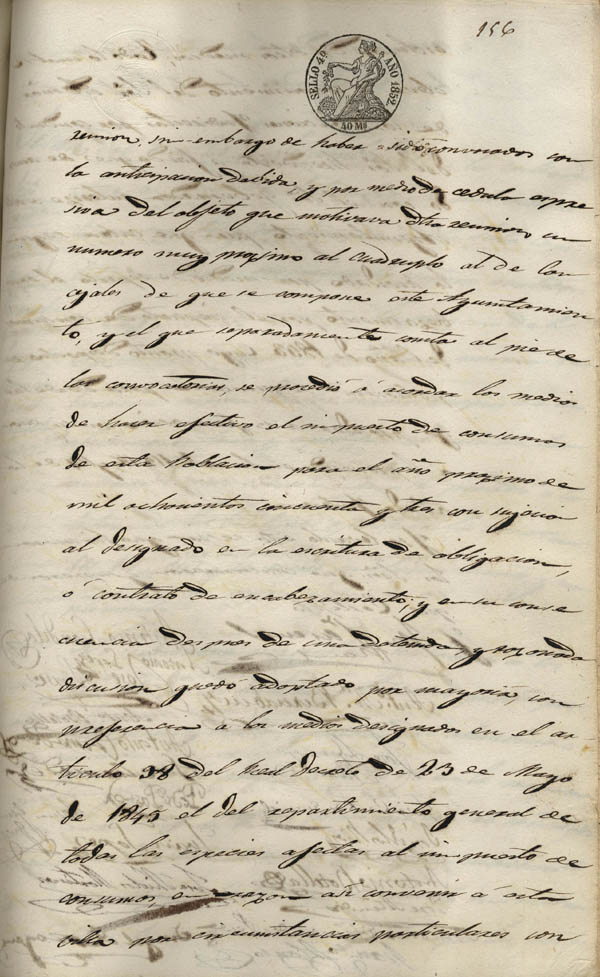 156
SELLO 4º AÑO 1852.
40 Ms
reunion, sin embargo de haber sido convocados con
la anticipacion debida, y por medio de cedula expre
siva del objeto que motivava dha reunion, un
numero muy procsimo al cuadruplo al de con
cejales de que se compone este Ayuntamien
to, y el que separadamente consta al pie de
las convocatorias, se procedió á acordar los medios
de hacer efectivo el impuesto de consumos
de esta Poblacion para el año procsimo de
mil ochocientos cincuenta y tres con sujecion
al designado en la escritura de obligacion,
ó contrato de encabezamiento; y en su conse
cuencia despues de una detenida, y razonada
discusion quedó adoptado por mayoria, con
preferencia a los medios designados en el ar
ticulo 38 del Real Decreto de 23 de Mayo
de 1845 el del repartimiento general de
todas las especies afectas al impuesto de
consumos, en razon asi convenir á esta
villa por circunstancias particulares con